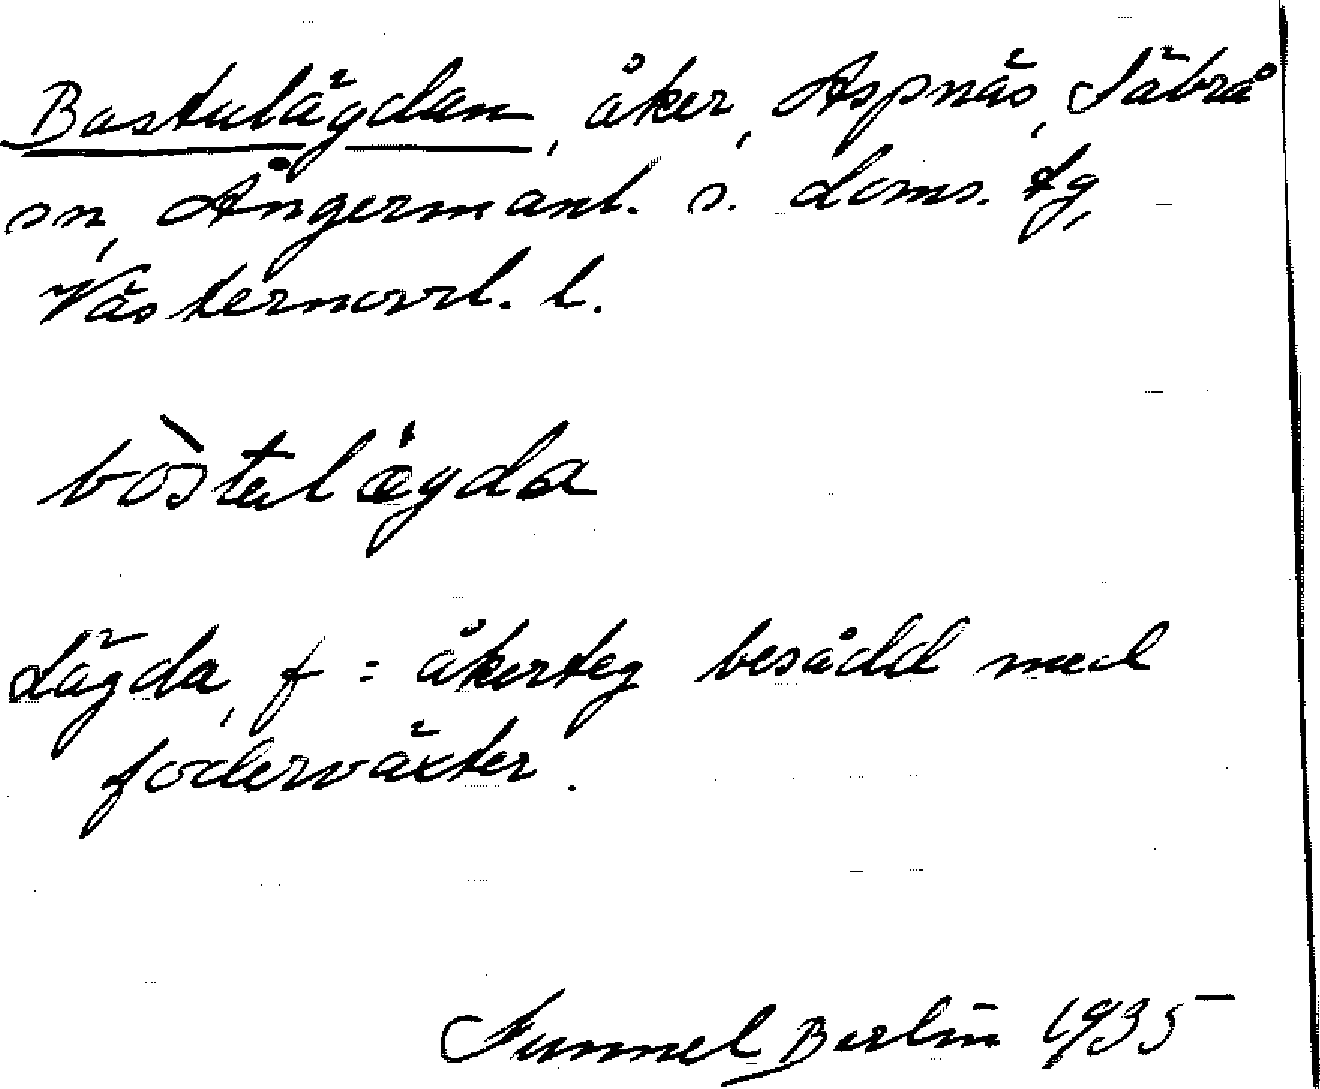 Bastulägdan, åker, Aspnäs, Säbrå
sn, Ångermanl. s. doms. tg,
Västernorrl. l.
bòstalægda
Lägda, f = åkerteg besådd med
foderväxter.
Gunnel Berlin 1935